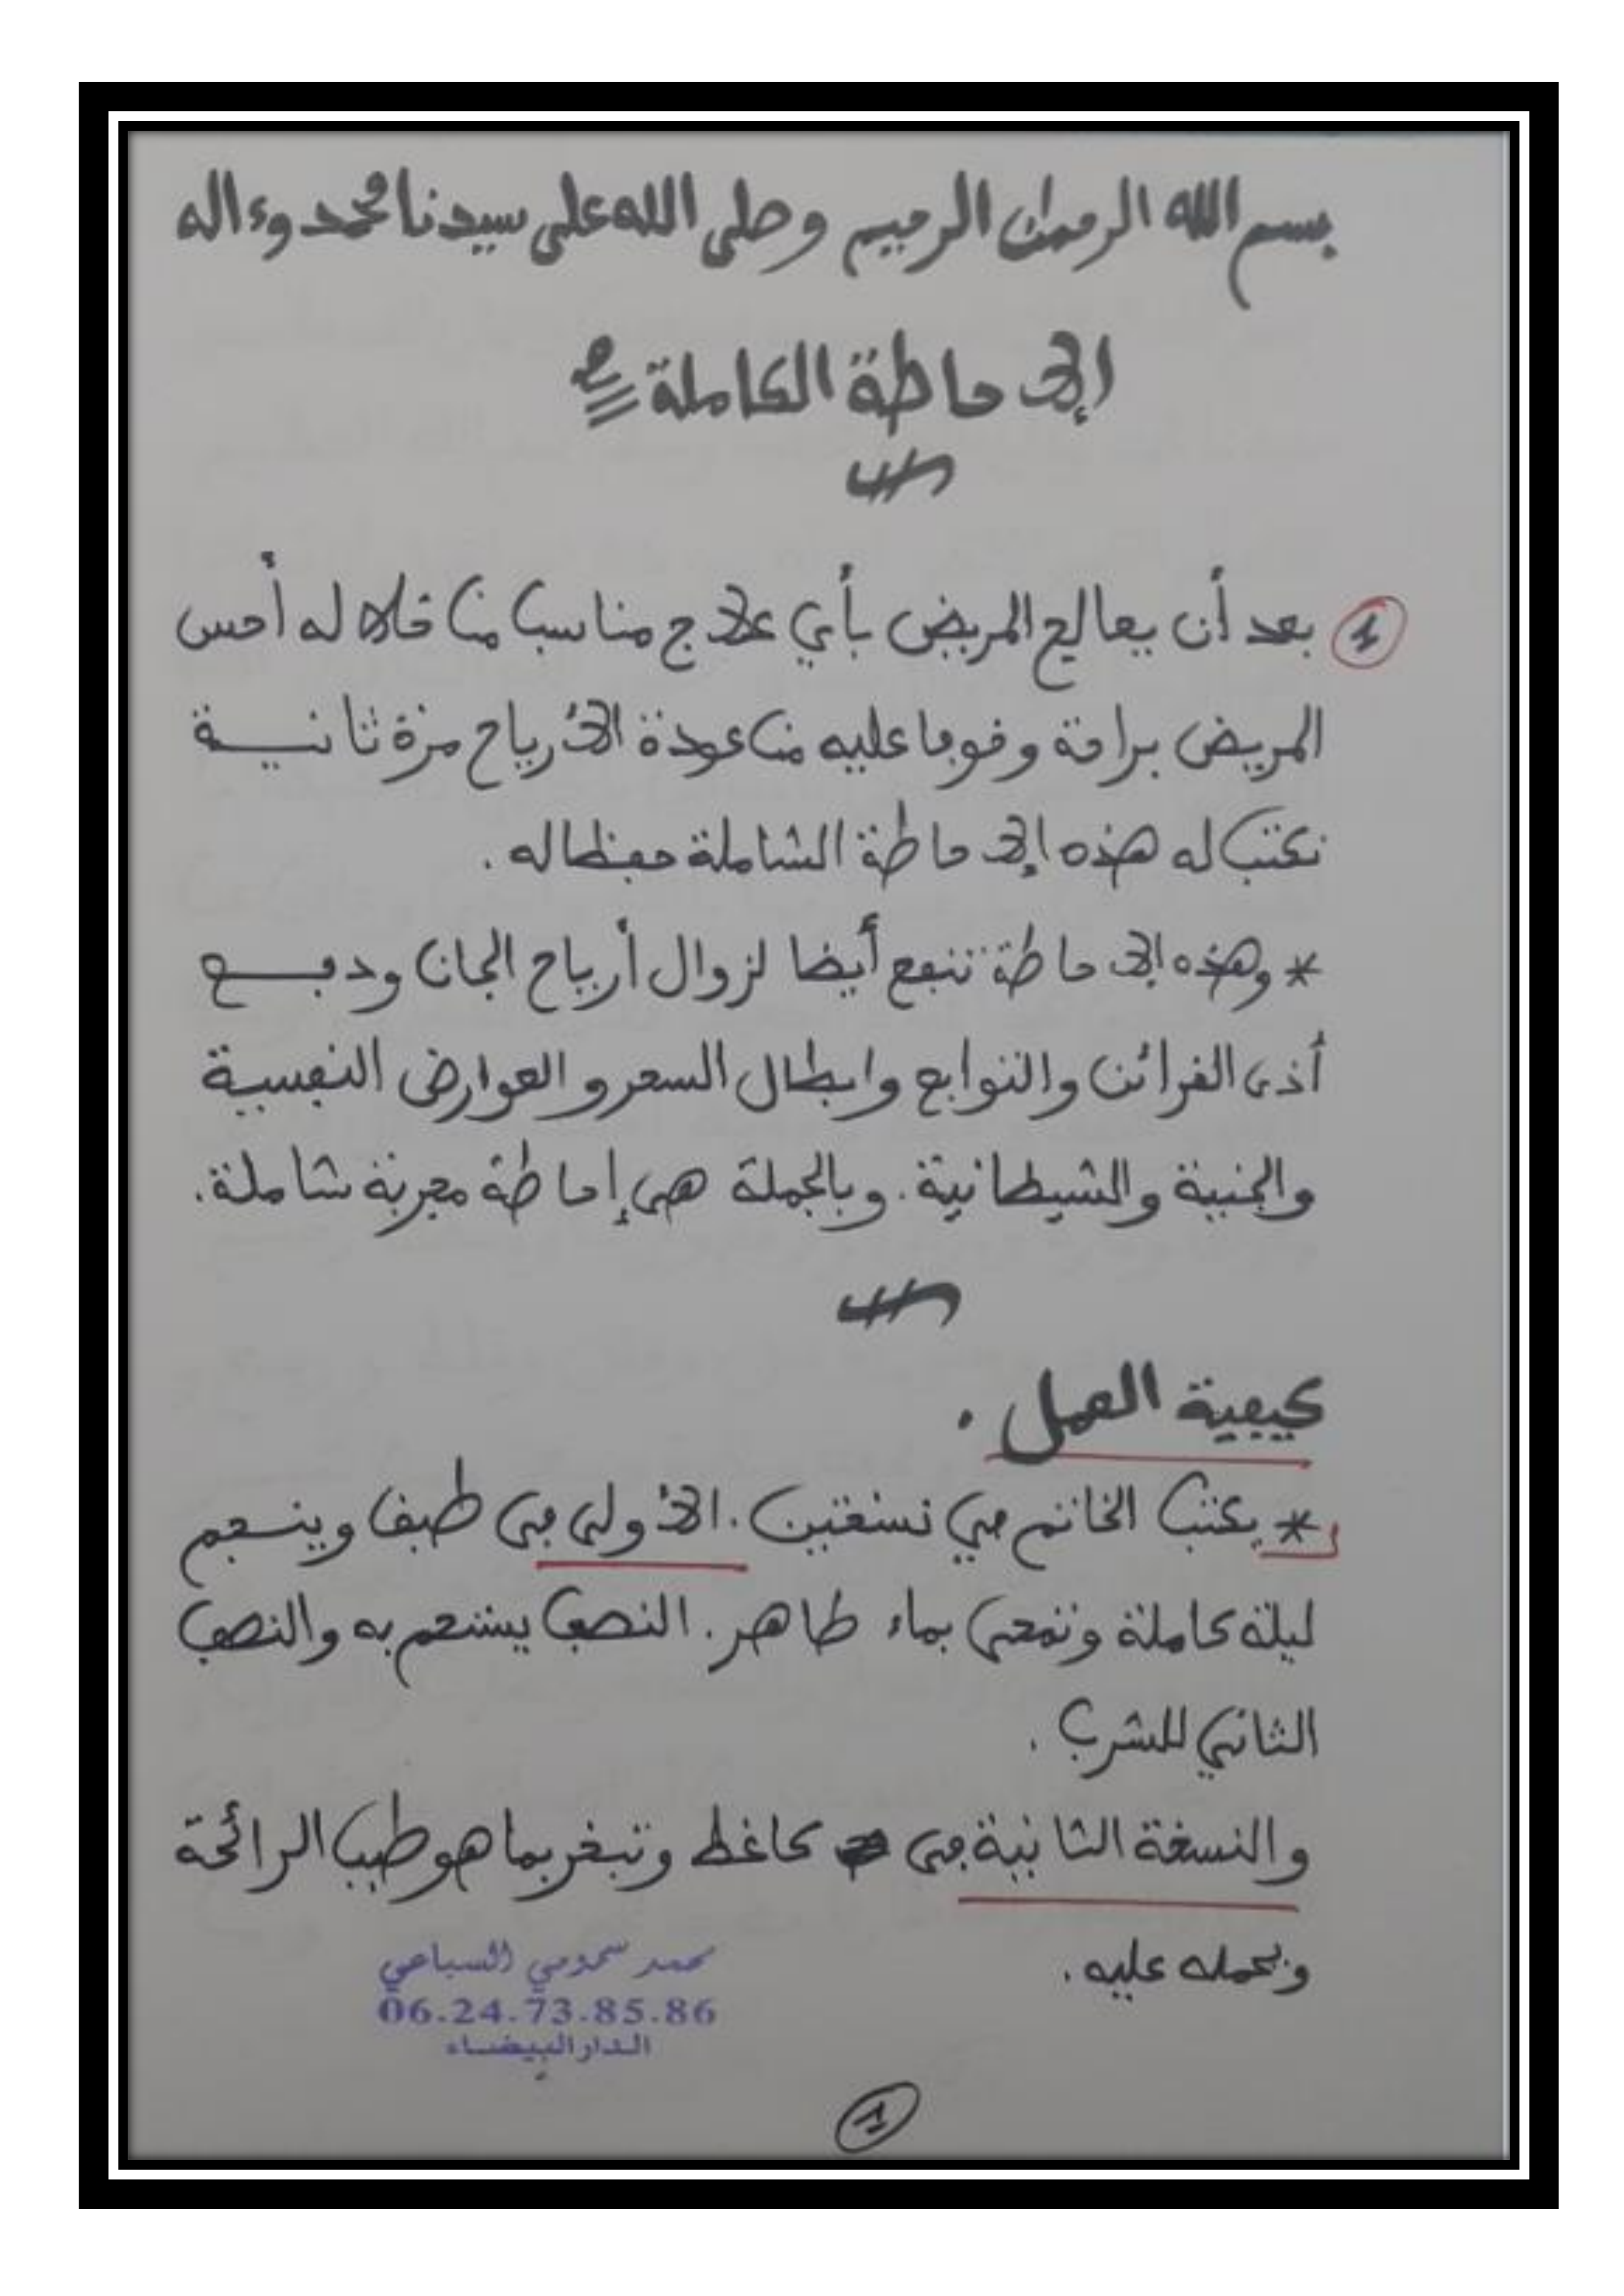 بسم الله الرحمان الرحيم وصلى الله على سيدنا محمد وءاله
الإحاطة الكاملة
1 بعد أن يعالج المريض بأي علاج مناسب من خلاله أحس
المريض براحة وخوفا عليه من عودة الأرياح مرة ثانية
نكتب له هذه الإحاطة الشاملة حفظا له .
* وهذه الإحاطة تنفع أيضا لزوال أرياح الجان ودفع
أذى القرائن والتوابع وابطال السحر و العوارض النفسية
والجنية والشيطانية . وبالجملة هي إحاطة مجربة شاملة .
كيفية العمل .
* يكتب الخاتم في نسختين . الأولى في طبق وينجم
ليلة كاملة وتمحى بماء طاهر . النصف يستحم به والنصف
الثاني للشرب .
والنسخة الثانية في كاغظ وتبخر بما هو طيب الرائحة
ويحمله عليه .
محمد السباعي
06.24.73.85.86
الدار البيضاء
1